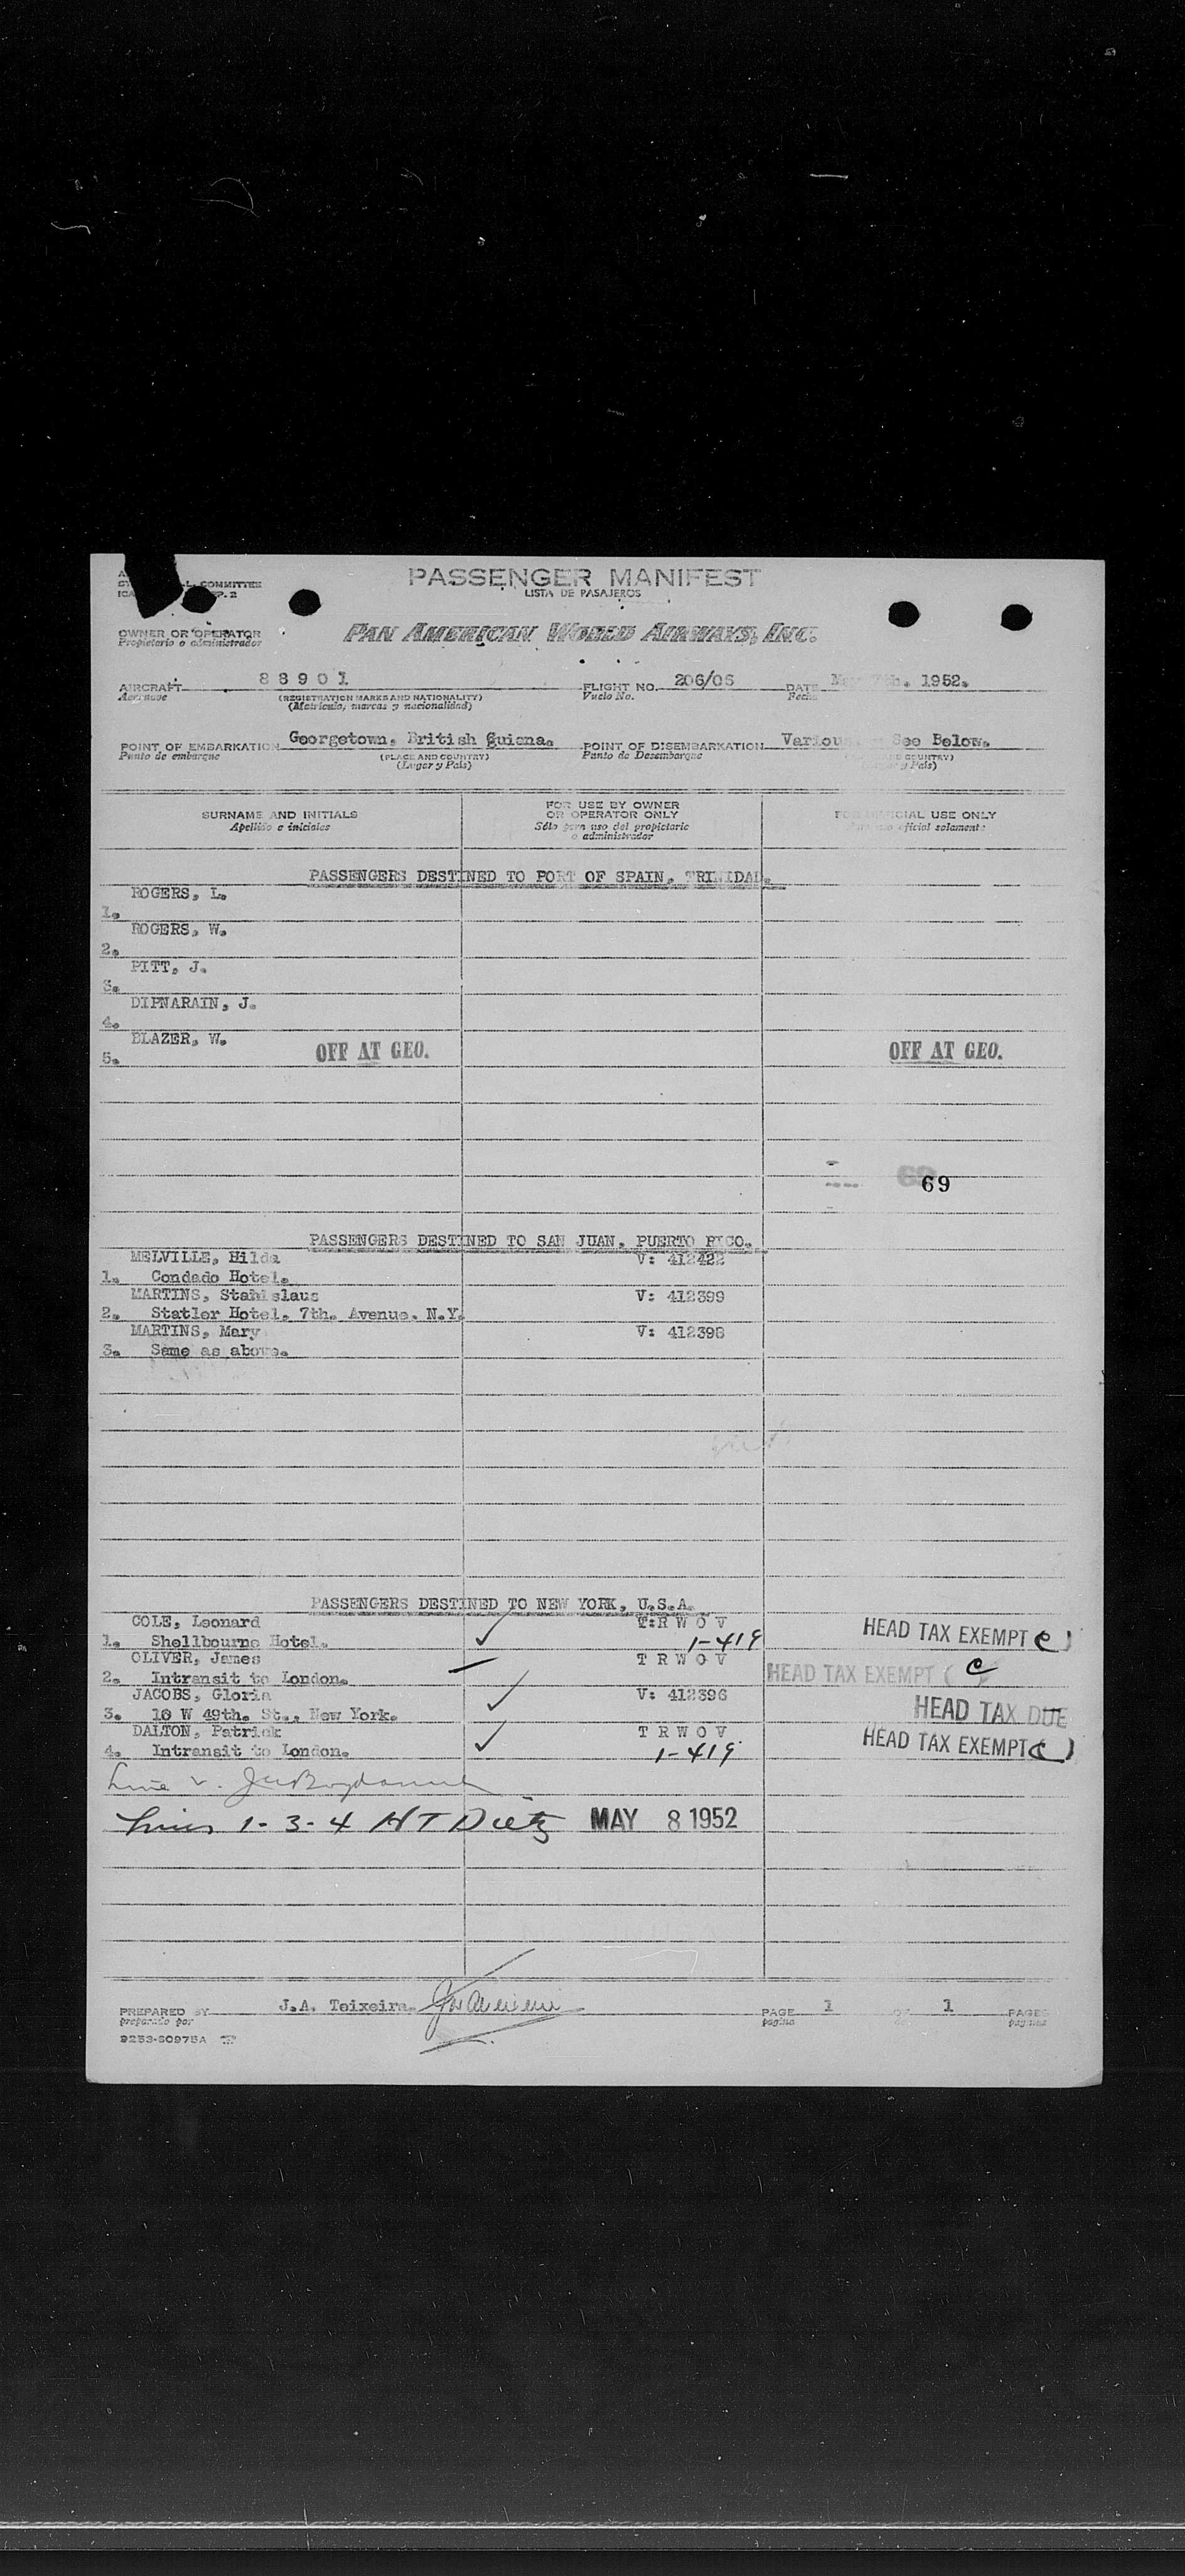 COMMITTEE
PASSENGER MANIFEST
LISTA DE PASAJEROS
OWNER OR OPERATOR
Propietario o administrador
PAN AMERICAN WORLD AIRWAYS, INC.
AIRCRAFT 88901 FLIGHT NO. 206/06 DATE May 7th. 1952.
Aeronave (REGISTRATION MARKS AND NATIONALITY) Vuelo No. Fecha
(Matricula, marcas y nacionalidad)
POINT OF EMBARKATION Georgetown, British Guiana. POINT OF DISEMBARKATION Various. - See Below.
Punto de embarque (PLACE AND COUNTRY) Punto de Desembarque COUNTRY)
(Lugar y Pais) y Pais)
SURNAME AND INITIALS FOR USE BY OWNER OR OPERATOR ONLY FOR OFFICIAL USE ONLY
Apellido e iniciales Sólo para uso del propietario o administrador uso oficial solamente
PASSENGERS DESTINED TO PORT OF SPAIN, TRINIDAD.
ROGERS, L.
1.
ROGERS, W.
2.
PITT, J.
3.
DIPNARAIN, J.
4.
BLAZER, W.
5. OFF AT GEO. OFF AT GEO.
69
PASSENGERS DESTINED TO SAN JUAN, PUERTO RICO.
MELVILLE, Hilda V: 412422
1. Condado Hotel.
MARTINS, Stanislaus V: 412399
2. Statler Hotel, 7th. Avenue. N.Y.
MARTINS, Mary V: 412398
3. Same as above.
PASSENGERS DESTINED TO NEW YORK, U.S.A.
COLE, Leonard T:R W O V
1. Shellbourne Hotel. 1-419 HEAD TAX EXEMPT C)
OLIVER, James T R W O V
2. Intransit to London. HEAD TAX EXEMPT ( C
JACOBS, Gloria V: 412396
3. 10 W 49th. St., New York. HEAD TAX DUE
DALTON, Patrick T R W O V
4. Intransit to London. 1-419 HEAD TAX EXEMPT (C)
Line
Lines 1-3-4 HT Dietz MAY 8 1952
PREPARED BY J.A. Teixeira. PAGE 1 OF 1 PAGES
preparado por pagina de paginas
9253-S0975A